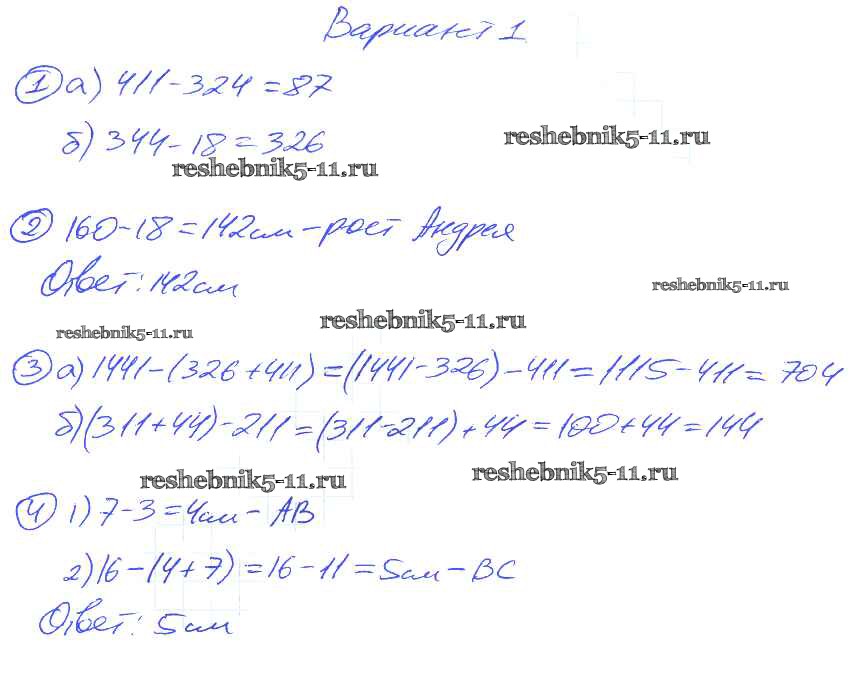 Вариант 1
① а) 411-324=87
б) 344-18=326
reshebnik5-11.ru
reshebnik5-11.ru
② 160-18=142см-рост Андрея
Ответ: 142см
reshebnik5-11.ru
reshebnik5-11.ru
reshebnik5-11.ru
③ а) 1441-(326+411)=(1441-326)-411=1115-411=704
б)(311+44)-211=(311-211)+44=100+44=144
reshebnik5-11.ru
reshebnik5-11.ru
④ 1) 7-3=4см-АВ
2) 16-(4+7)=16-11=5см-ВС
Ответ: 5см